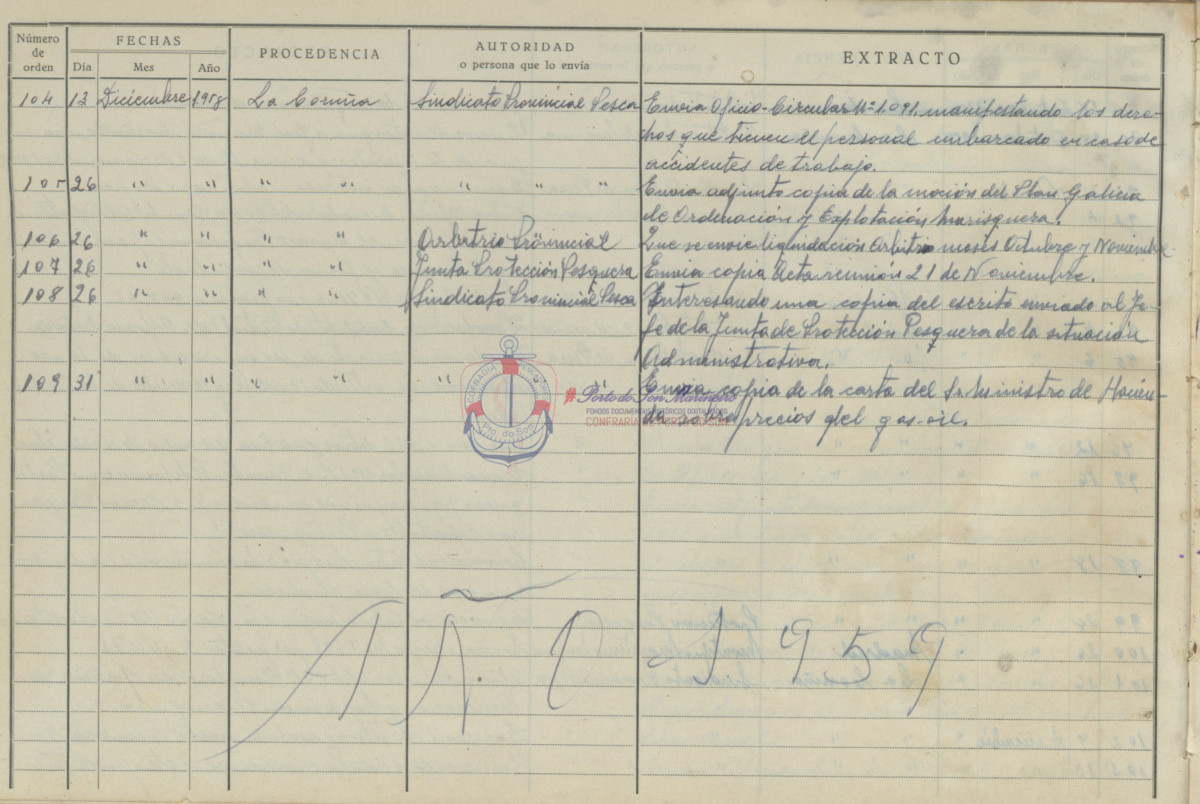 Número de orden
FECHAS
Dia Mes Año
PROCEDENCIA
AUTORIDAD
o persona que lo envía
EXTRACTO
104 13 Diciembre 1958 La Coruña Sindicato Provincial Pesca Envia Oficio-Circular Nº 1.091, manifestando los dere-
chos que tienen el personal embarcado en caso de
accidentes de trabajo.
105 26 " " " " " " " Envia adjunto copia de la moción del Plan Galicia
de Ordenación y Explotación Marisquera.
106 26 " " " " Arbitrio Provincial Que se envie liquidación Arbitrio meses Octubre y Noviembre
107 26 " " " " Junta Protección Pesquera Envia copia Acta reunión 21 de Noviembre.
108 26 " " " " Sindicato Provincial Pesca Interesando una copia del escrito enviado al Je-
fe de la Junta de Protección Pesquera de la situación
Administrativa.
109 31 " " " " " " Envia copia de la carta del Sr. Ministro de Hacien-
da sobre precios del gas-oil.
COFRADIA
Pto. do Son
#Porto do Son Mariñeiro
FONDOS DOCUMENTAIS HISTÓRICOS DIXITALIZADOS
CONFRARÍA DE PORTO DO SON
AÑO 1959